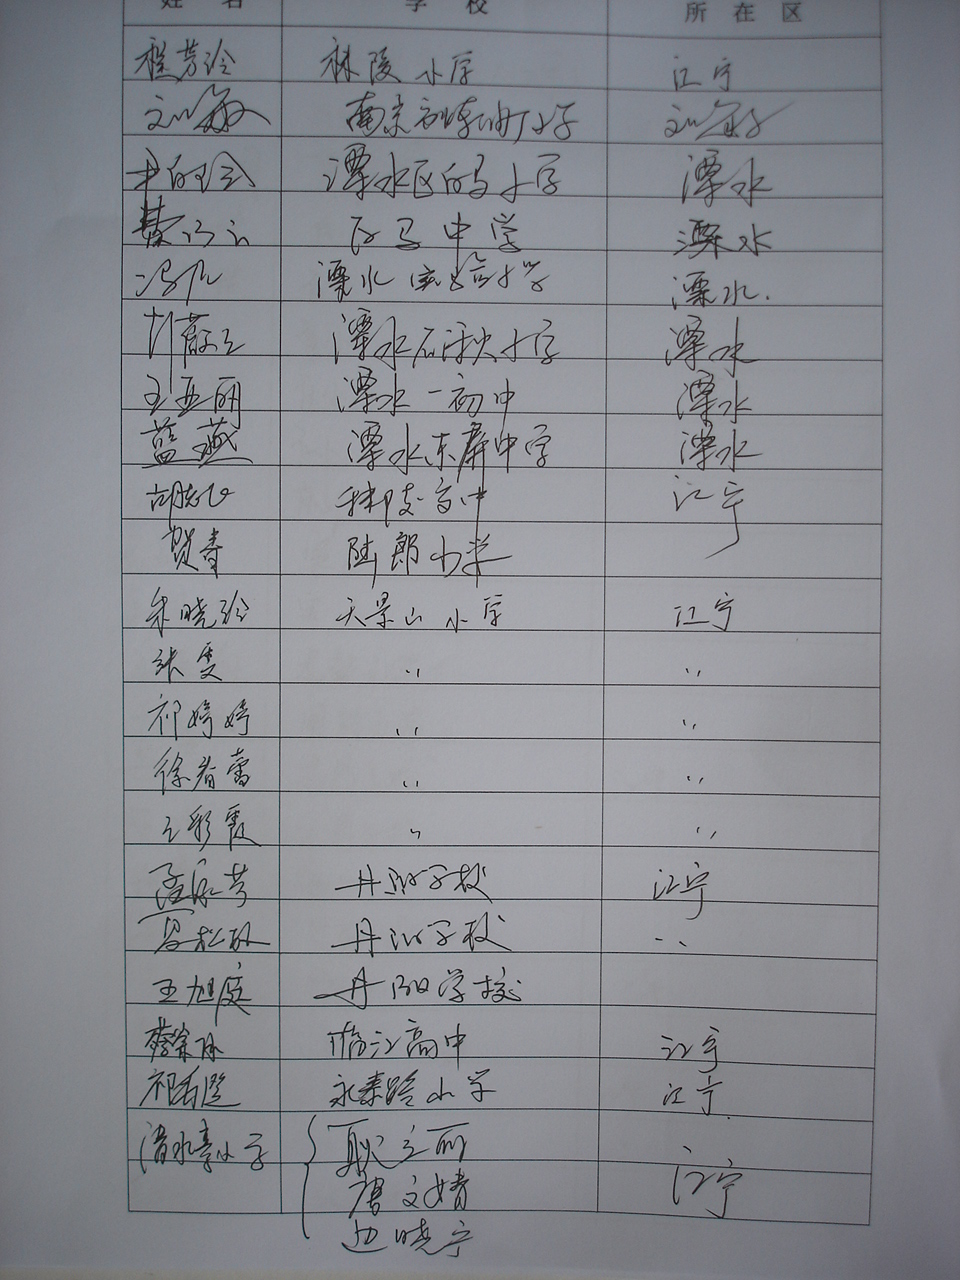 姓 名 学 校 所 在 区
程芳玲 秣陵小学 江宁
刘敏 南京 小学
溧水区白马小学 溧水
白马中学 溧水
冯 溧水实验小学 溧水.
溧水石湫小学 溧水
王亚丽 溧水一初中 溧水
蓝燕 溧水东屏中学 溧水
胡 秣陵高中 江宁
贺春 陆郎小学
朱晓玲 天景山小学 江宁
张雯 〃 〃
祁婷婷 〃 〃
徐春蕾 〃 〃
王彩霞 〃 〃
孟 芳 丹阳学校 江宁
丹阳学校 〃
王旭庭 丹阳学校
临江高中 江宁
永泰路小学 江宁
清水亭小学 耿立丽 江宁
唐文婧
边晓宁